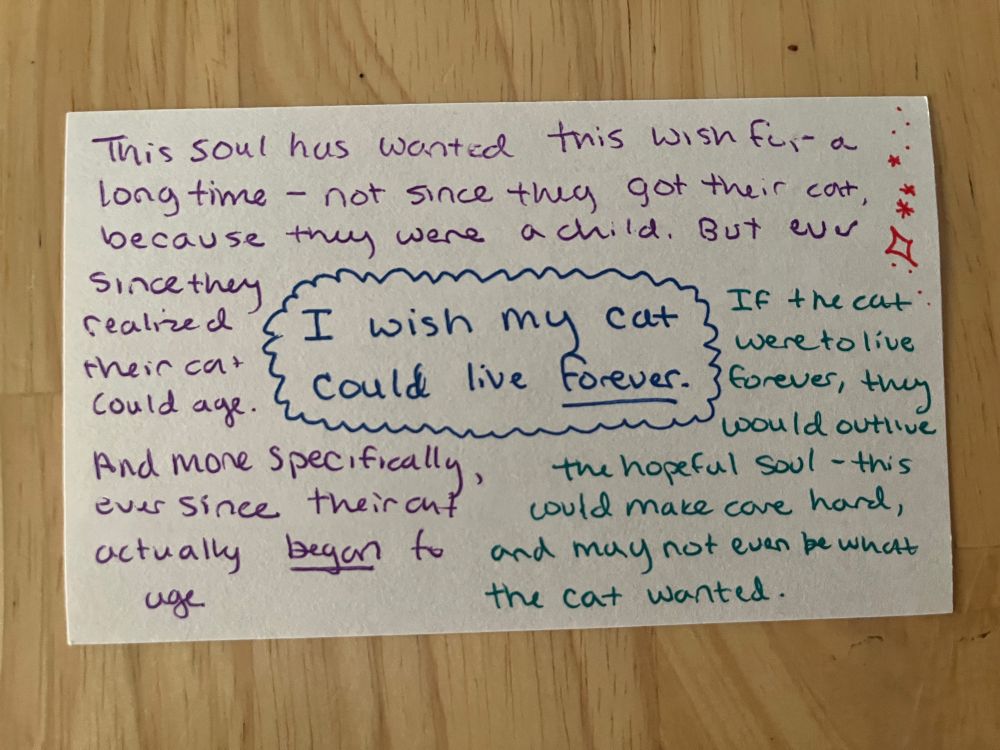 This soul has wanted this wish for a
long time - not since they got their cat,
because they were a child. But ever
since they
realized
their cat
could age.
And more specifically,
ever since their cat
actually began to
age
I wish my cat
could live forever.
If the cat
were to live
forever, they
would outlive
the hopeful soul - this
could make care hard,
and may not even be what
the cat wanted.